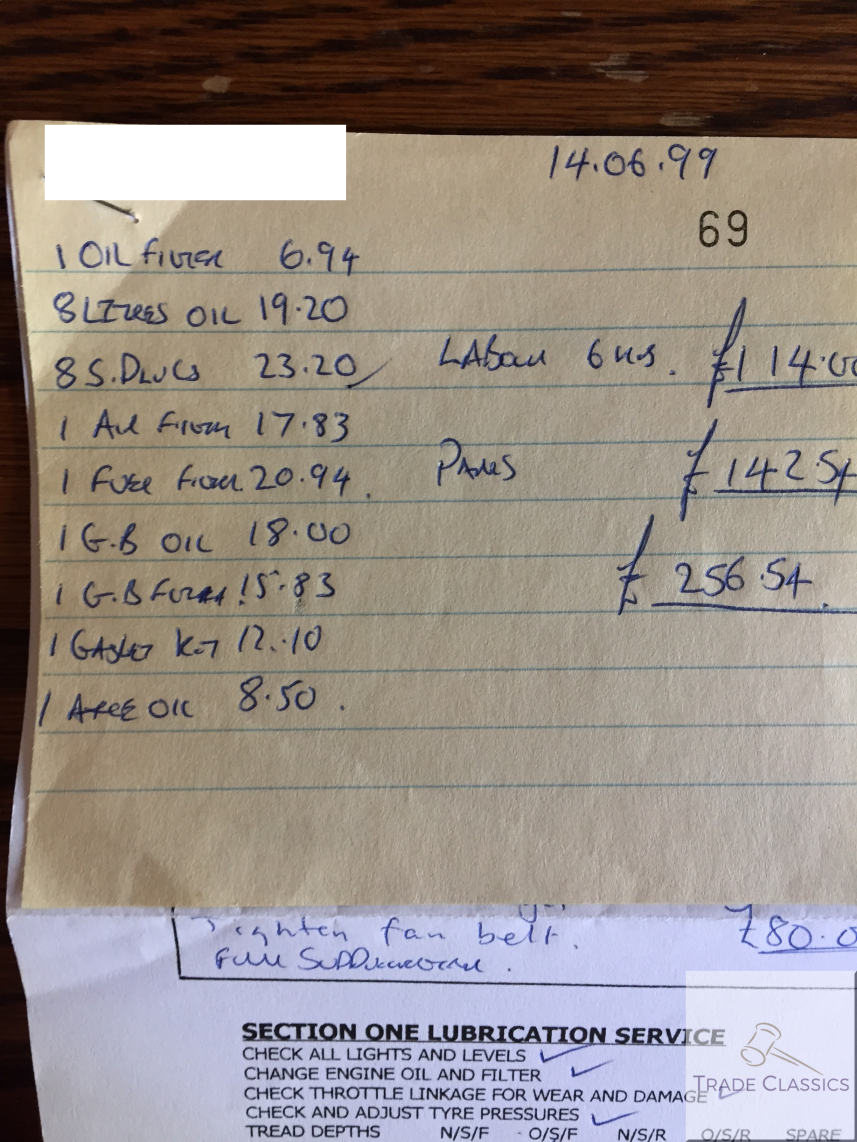 14.06.99
69
1 OIL FILTER 6.94
8 LITRES OIL 19.20
8 S.PLUGS 23.20
LABOUR 6 HRS. £114.00
1 AIR FILTER 17.83
1 FUEL FILTER 20.94.
PARTS £142.54
1 G.B OIL 18.00
1 G.B FILTER 15.83
£256.54.
1 GASKET KIT 12.10
1 AXLE OIL 8.50.
Tighten fan belt.
£80.0
FULL
SECTION ONE LUBRICATION SERVICE
CHECK ALL LIGHTS AND LEVELS
CHANGE ENGINE OIL AND FILTER
CHECK THROTTLE LINKAGE FOR WEAR AND DAMAGE
CHECK AND ADJUST TYRE PRESSURES
TREAD DEPTHS N/S/F O/S/F N/S/R O/S/R SPARE
TRADE CLASSICS